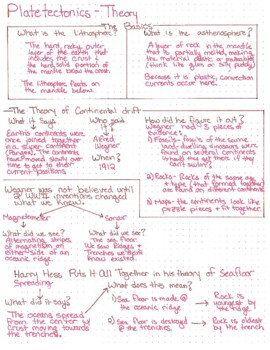 Plate tectonics - Theory
The Basics
What is the Lithosphere?
The hard, rocky, outer
layer of the earth that
includes the crust &
the hard, solid portion
of the mantle below the crust.
The lithosphere floats on
the mantle below.
What is the asthenosphere?
A layer of rock in the mantle
that is partially melted, making
the material plastic, or moveable
(think like glue or silly putty)
Because it is plastic, convection
currents occur here.
The Theory of Continental drift
What it says
Earth's continents were
once joined together
in a super continent
(Pangaea). The continents
have moved slowly over
time to get to their
current positions.
Who said it?
Alfred
Wegener
When?
1912
How did he figure it out?
Wegener had 3 pieces of
evidence:
1) Fossils - fossils of the same
land-dwelling dinosaurs were
found on several continents
(could they get there if they
can't swim?)
2) Rocks - Rocks of the same age
& type (that formed together)
are found on different continents.
3) Maps - the continents look like
puzzle pieces & fit together.
Wegener was not believed until
after WWII inventions changed
what we knew.
Magnetometer
Sonar
What did we see?
Alternating stripes
of magnetism on
either side of an
oceanic ridge.
What did we see?
The sea floor.
We saw Ridges &
Trenches we didn't
know existed.
Harry Hess Puts It All Together in his theory of Seafloor
Spreading
What did it say?
The oceans spread
from the center w/
crust moving towards
the trenches.
What does this mean?
1) Sea floor is made @
the oceanic ridge
Rock is
youngest by the
ridge
2) Sea floor is destroyed
@ the trenches
Rock is oldest
by the trench.